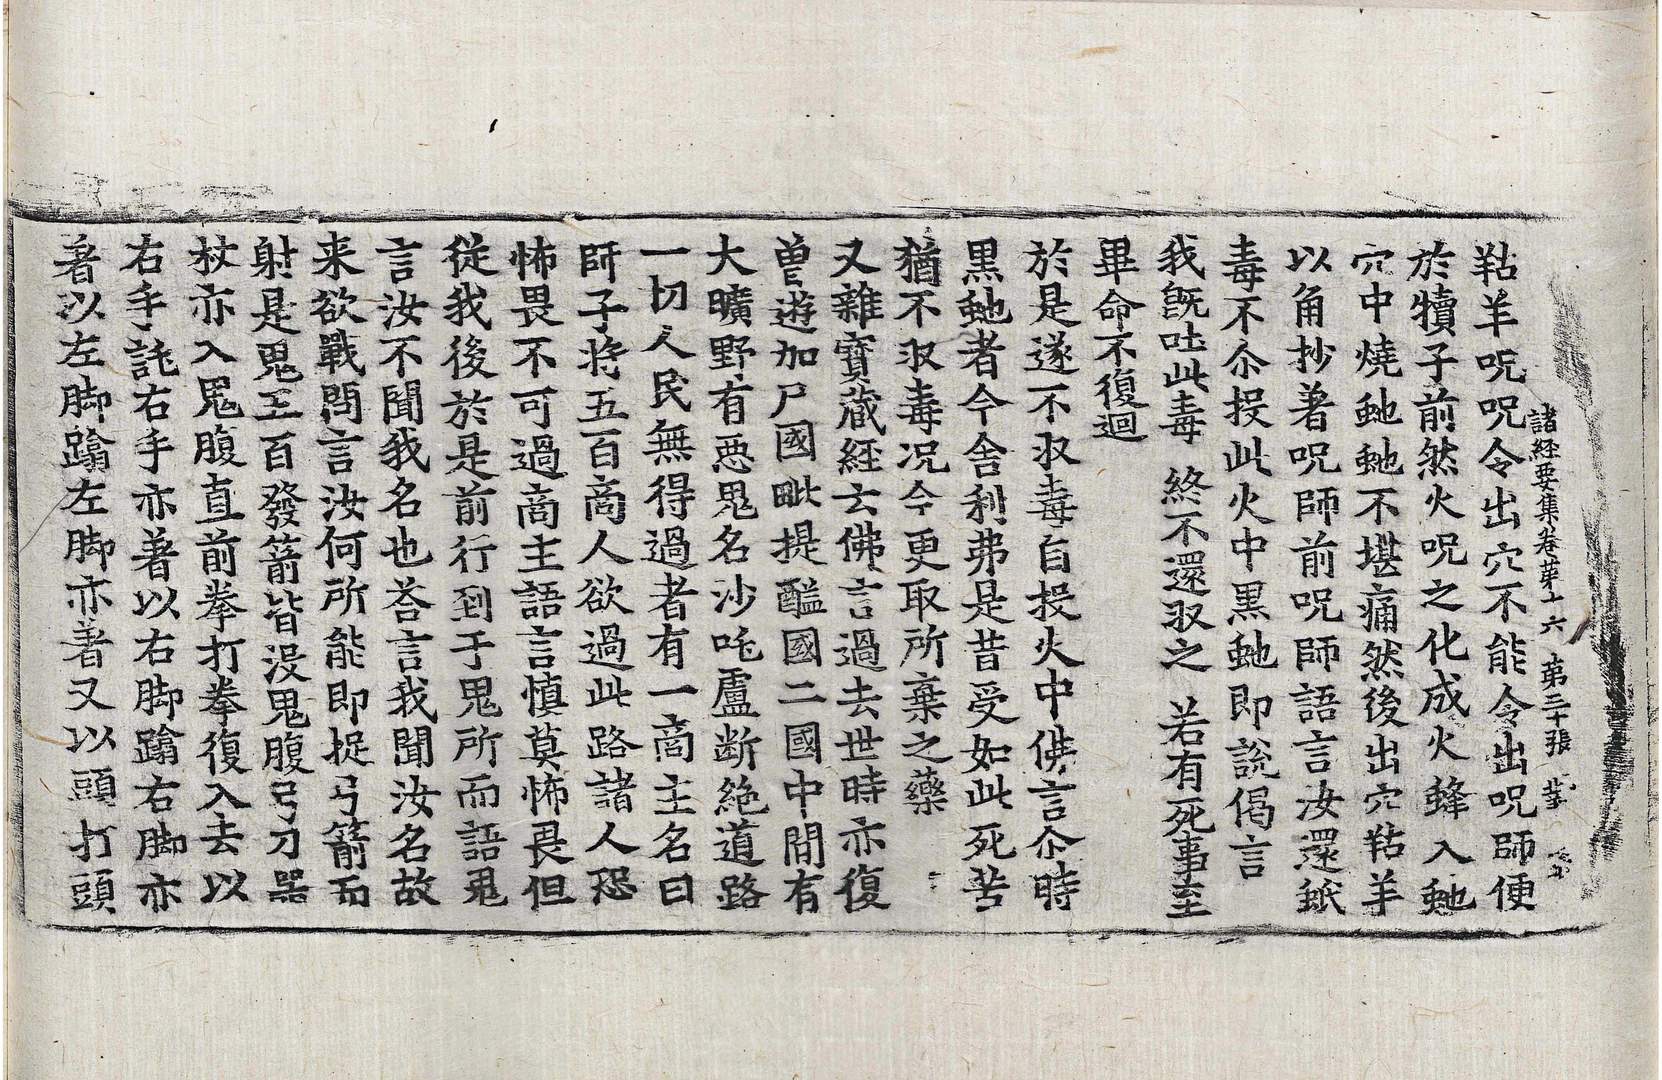 諸経要集卷苐十六 第三十張
䍩羊呪呪令出穴不能令出呪師便
於犢子前然火呪之化成火蜂入虵
穴中燒虵虵不堪痛然後出穴䍩羊
以角抄著呪師前呪師語言汝還䑛
毒不尒投此火中黒虵即說偈言
我旣吐此毒 終不還収之 若有死事至
畢命不復迴
於是遂不収毒自投火中佛言尒時
黒虵者今舍利弗是昔受如此死苦
猶不収毒况今更取所棄之藥
又雜寶藏經云佛言過去世時亦復
曽遊加尸國毗提醯國二國中間有
大曠野有悪鬼名沙吒盧断絶道路
一切人民無得過者有一啇主名曰
師子将五百啇人欲過此路諸人恐
怖畏不可過啇主語言慎莫怖畏但
従我後於是前行到于鬼所而語鬼
言汝不聞我名也荅言我聞汝名故
来欲戰問言汝何所能即捉弓箭而
射是鬼五百發箭皆沒鬼腹弓刀器
杖亦入鬼腹直前拳打拳復入去以
右手託右手亦著以右脚踰右脚亦
著以左脚踰左脚亦著又以頭打頭